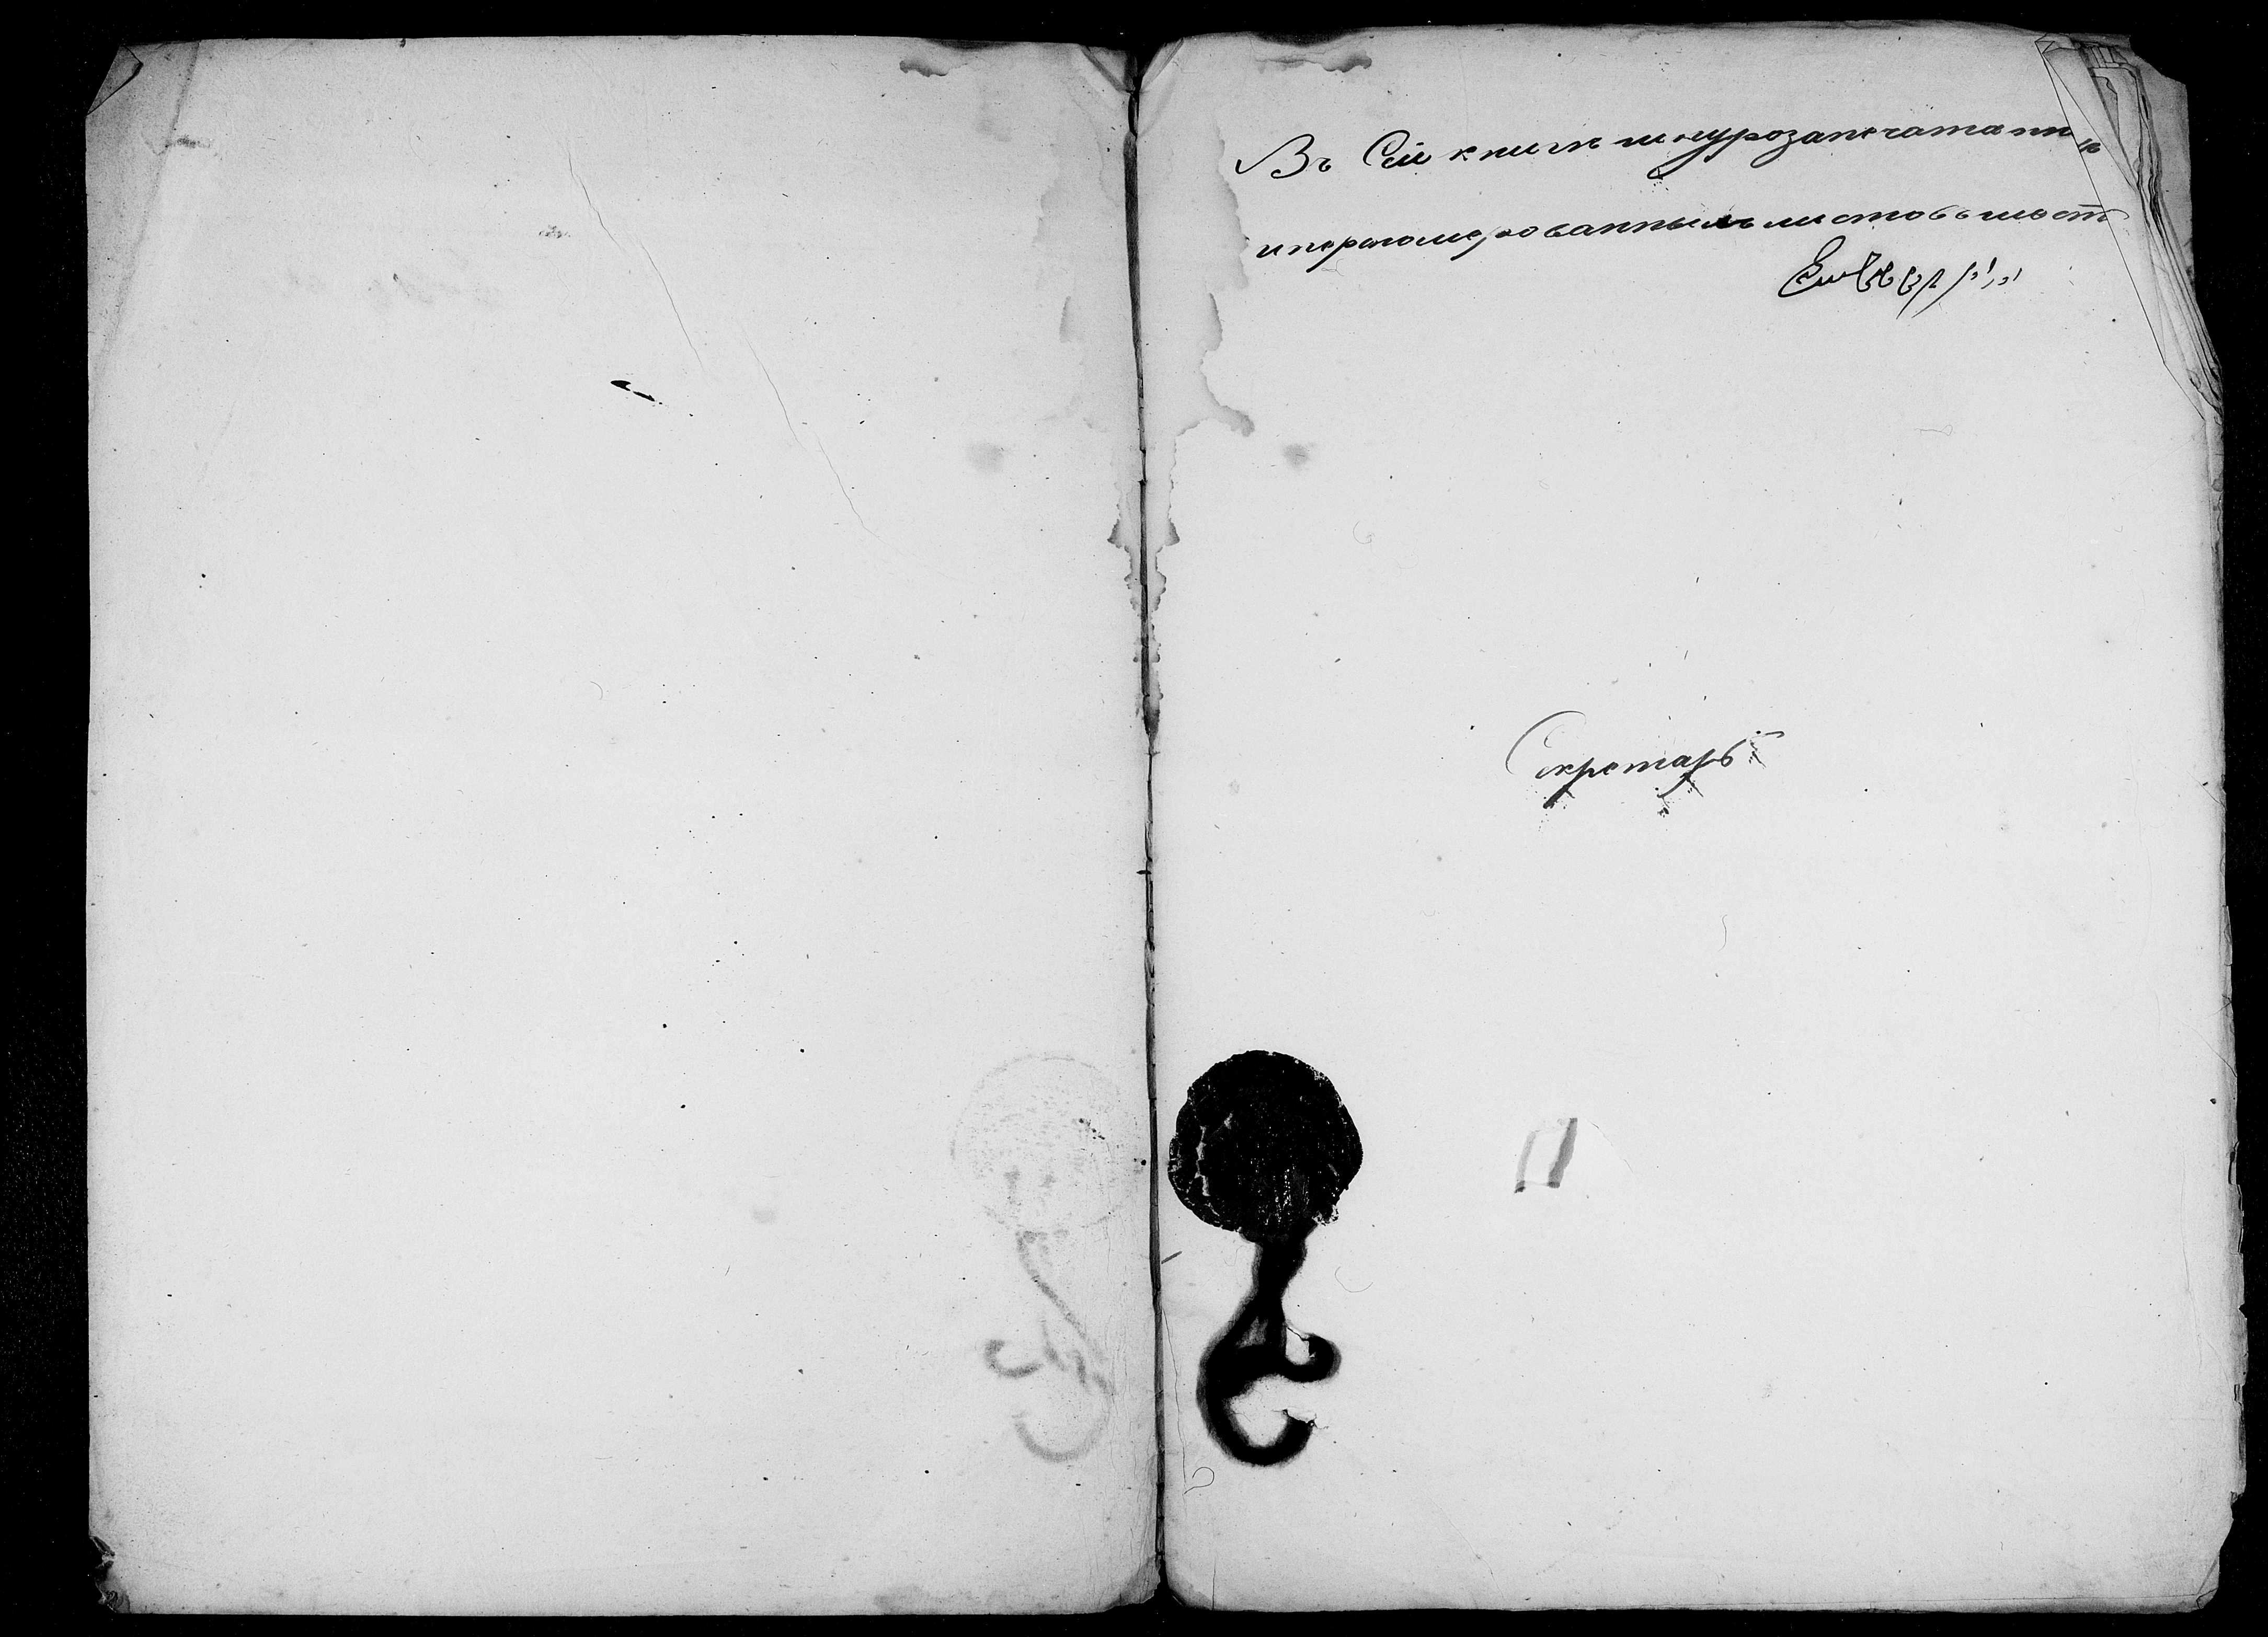 Въ Сей книгѣ шнурозапечатанн
ипереномерованныхъ листовъ шест
Секретарь